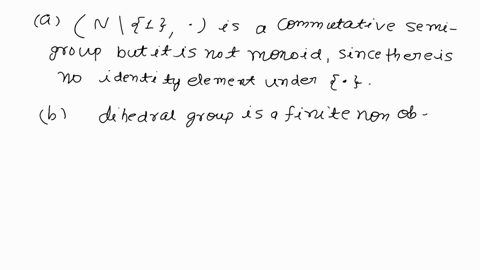 (a) (N \ {1}, ·) is a commutative semi-
group but it is not monoid, since there is
no identity element under {·}.
(b) dihedral group is a finite non ob-